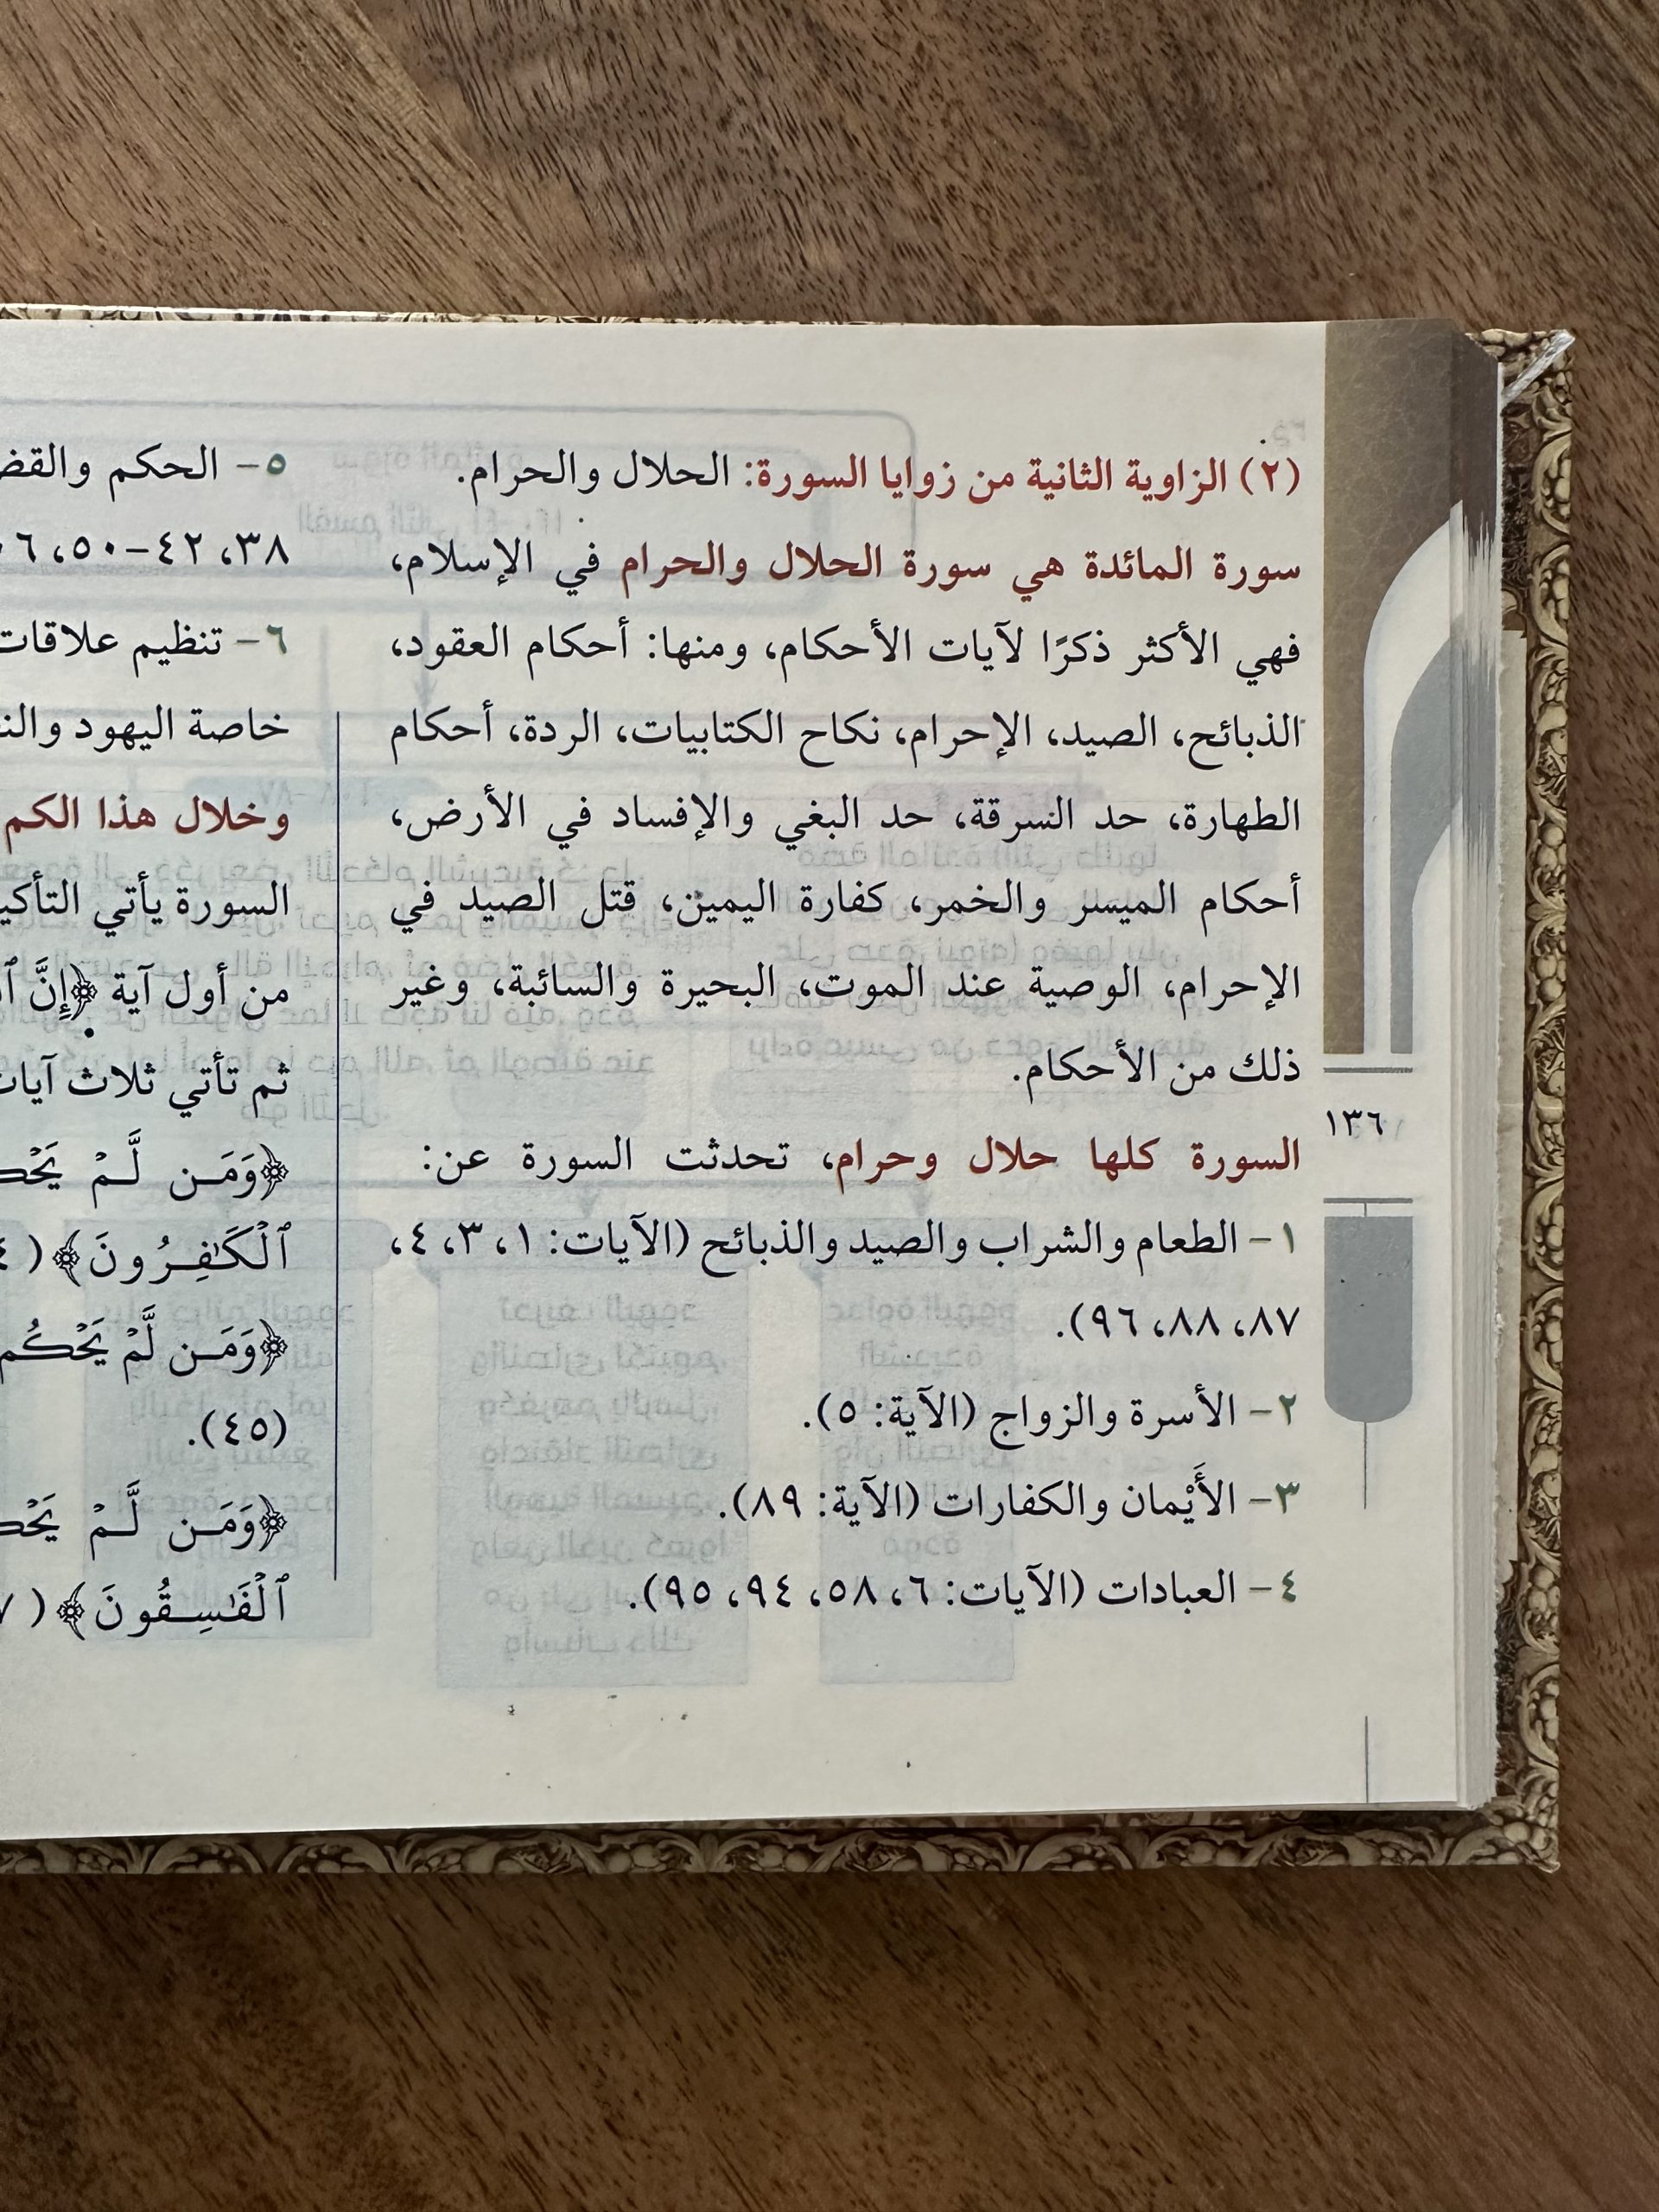 (٢) الزاوية الثانية من زوايا السورة: الحلال والحرام.
سورة المائدة هي سورة الحلال والحرام في الإسلام،
فهي الأكثر ذكرًا لآيات الأحكام، ومنها: أحكام العقود،
الذبائح، الصيد، الإحرام، نكاح الكتابيات، الردة، أحكام
الطهارة، حد السرقة، حد البغي والإفساد في الأرض،
أحكام الميسر والخمر، كفارة اليمين، قتل الصيد في
الإحرام، الوصية عند الموت، البحيرة والسائبة، وغير
ذلك من الأحكام.
السورة كلها حلال وحرام، تحدثت السورة عن:
١- الطعام والشراب والصيد والذبائح (الآيات: ١، ٣، ٤،
٨٧، ٨٨، ٩٦).
٢- الأسرة والزواج (الآية: ٥).
٣- الأَيْمان والكفارات (الآية: ٨٩).
٤- العبادات (الآيات: ٦، ٥٨، ٩٤، ٩٥).
٥- الحكم
٣٨، ٤٢-٥٠،
٦- تنظيم علاقات
خاصة اليهود
وخلال هذا الكم
السورة يأتي
من أول آية ﴿إِنَّ
ثم تأتي ثلاث
﴿وَمَن لَّمْ
ٱلْكَـٰفِرُونَ﴾
﴿وَمَن لَّمْ يَحْكُم
(٤٥).
﴿وَمَن لَّمْ
ٱلْفَـٰسِقُونَ﴾
١٣٦